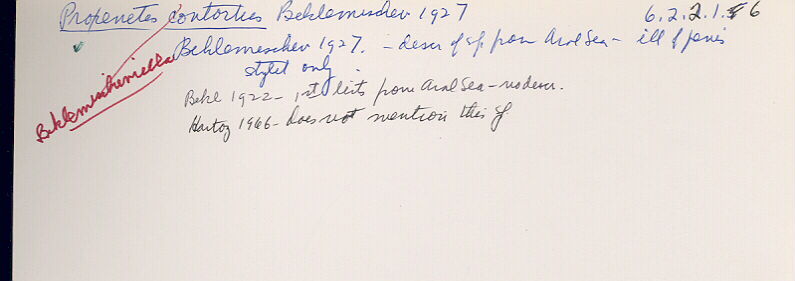 Propenetes contortus Beklemischev 1927 6.2.2.1.5 6
Beklemischev 1927. - descr of sp from Aral Sea - ill of penis
stylet only
Beklemischeviella
Bekl 1922 - 1st lists from Aral Sea - no descr.
Hartog 1966 - does not mention this sp